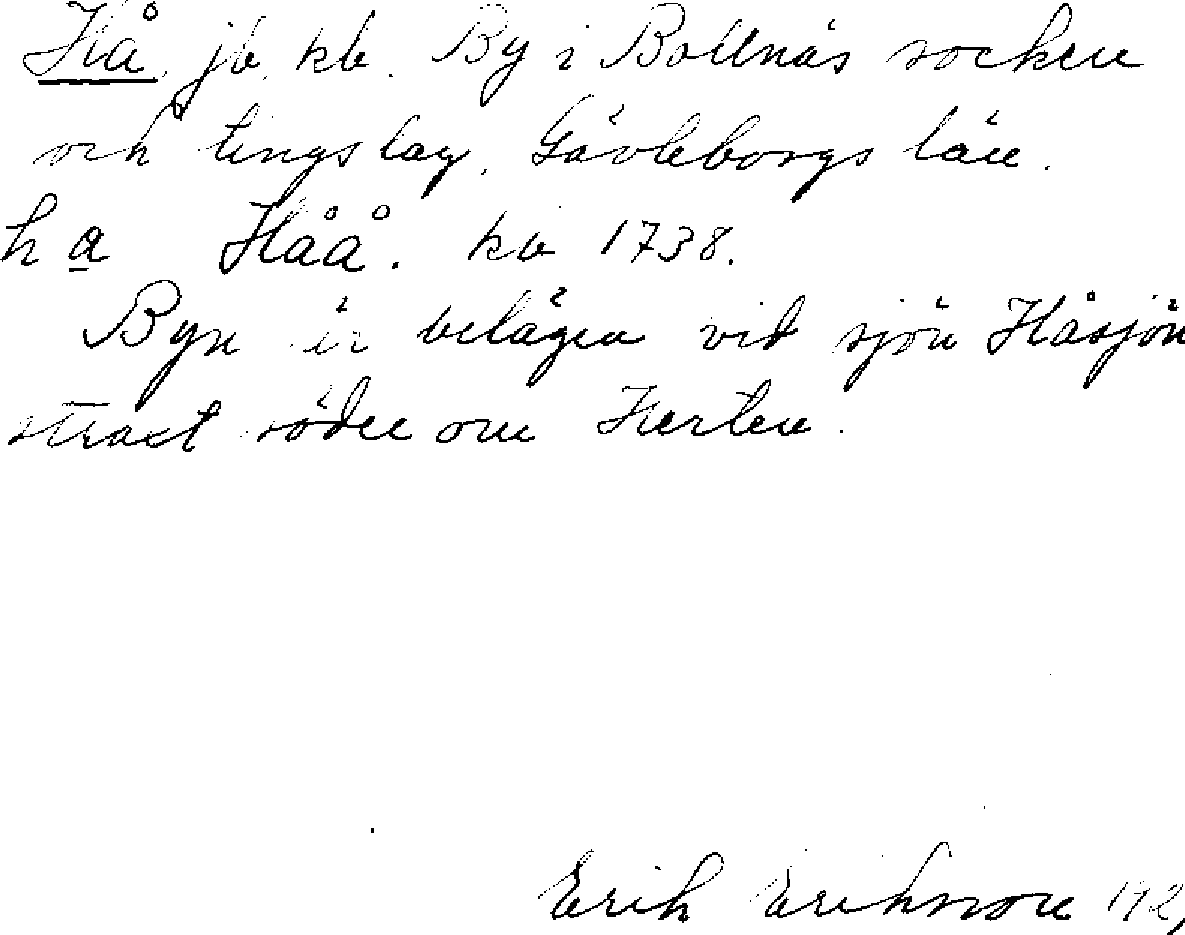 Hå, jb, kb. By i Bollnäs socken
och tingslag, Gävleborgs län.
ha Håå. kb 1738.
Byn är belägen vid sjön Håsjön
strax söder om Herten.
Erik Eriksson 192